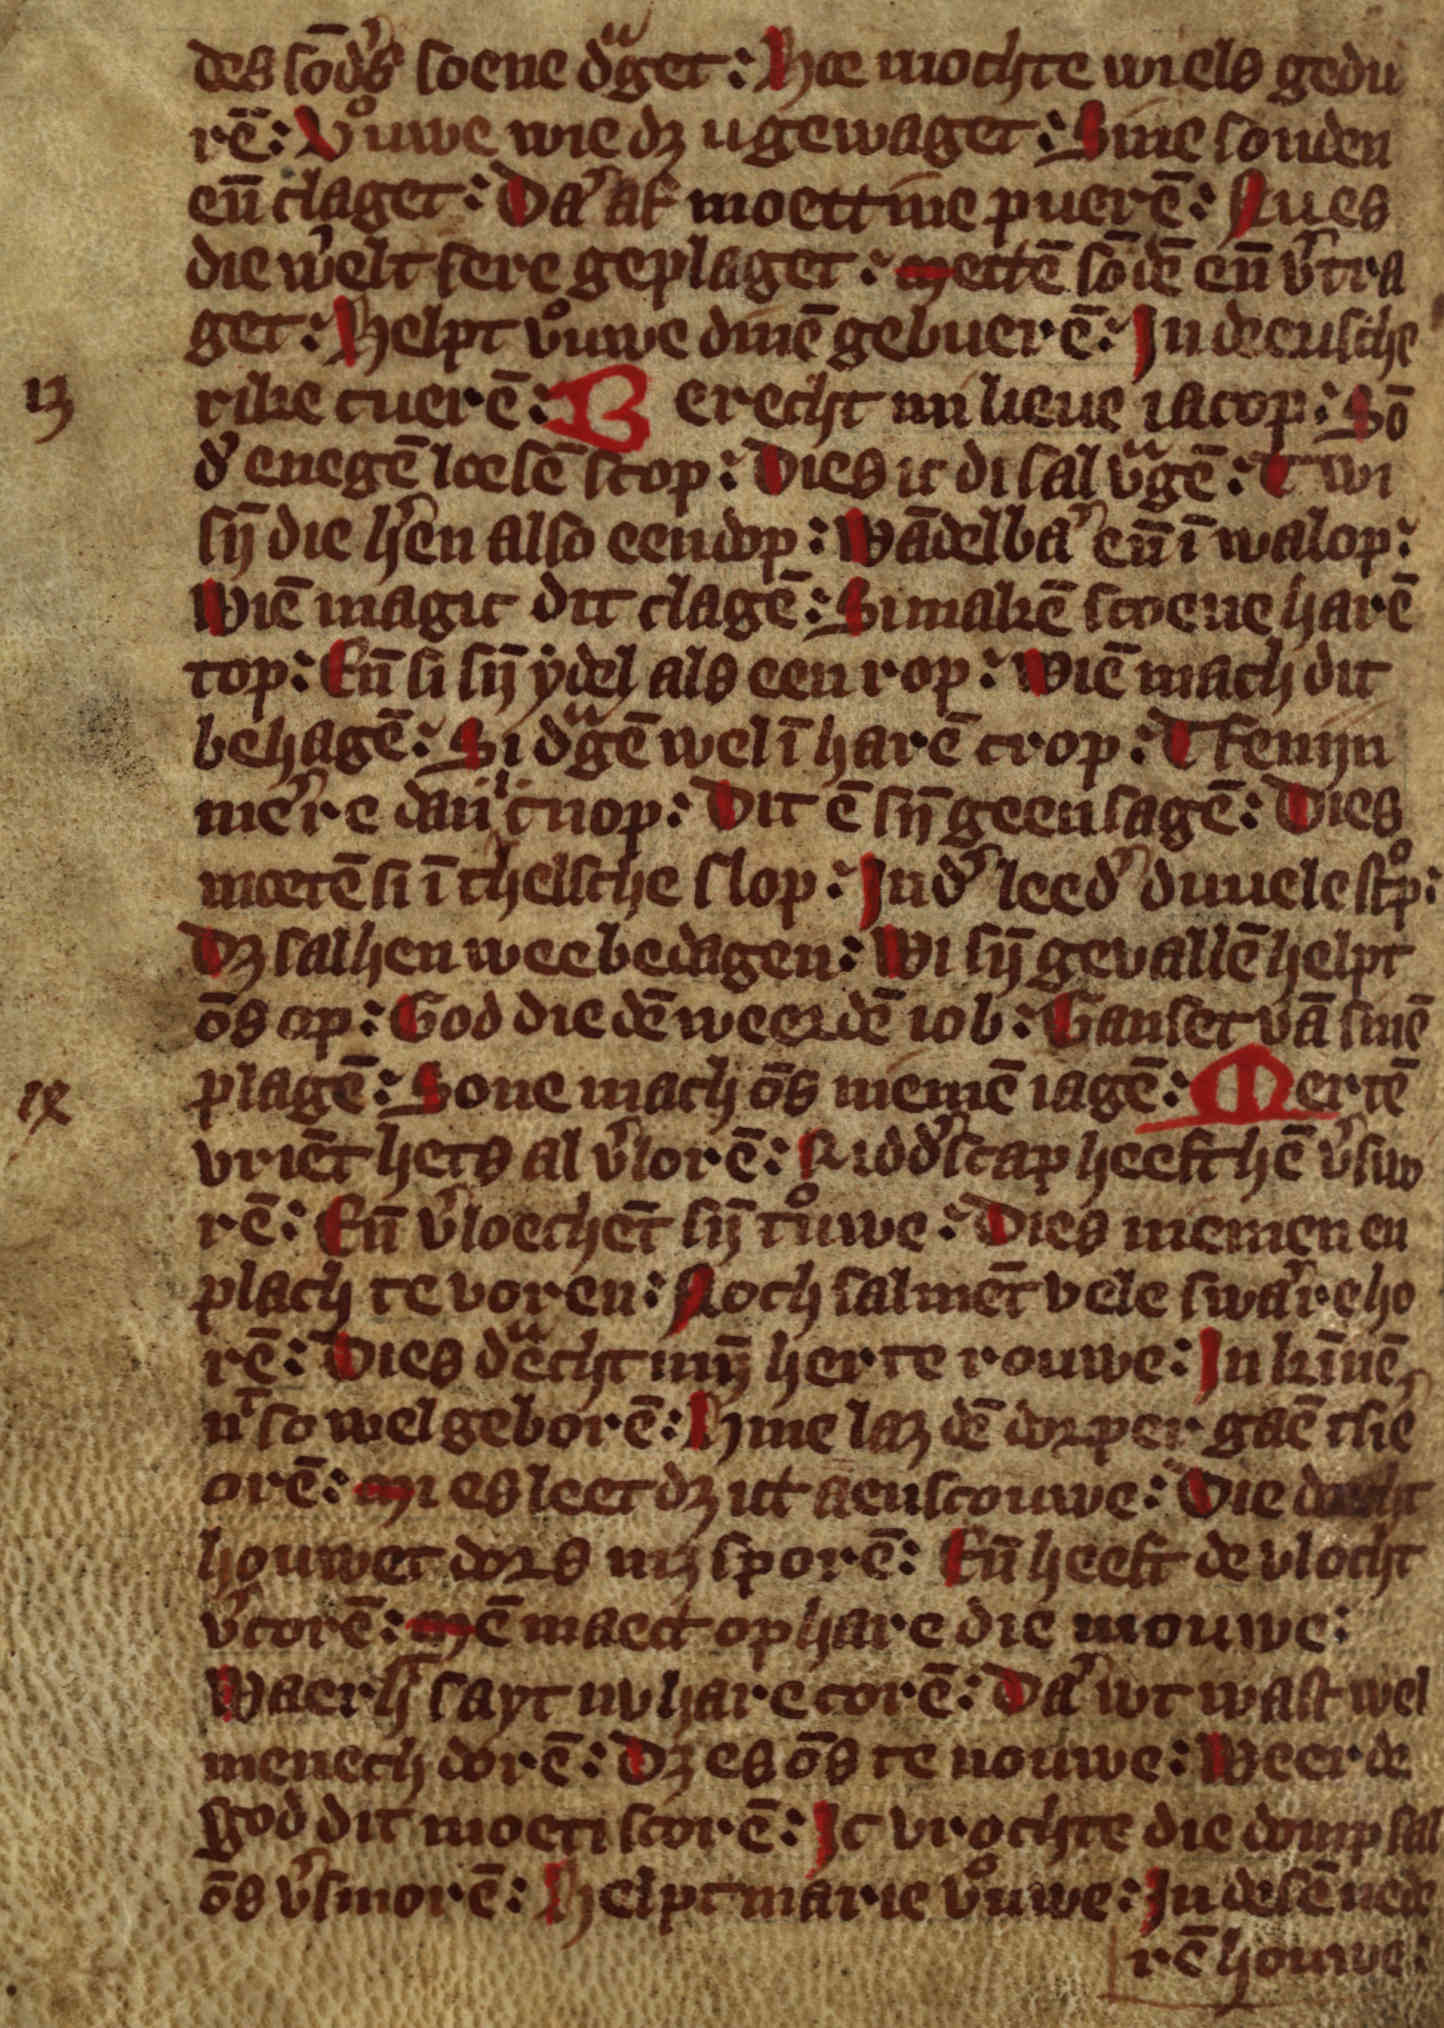 des sōd's soene dͣget: Hoe mochte wiels gedu
rē: Vͦuwe wie dꝫ ugewaget: Sine sonden
eñ claget: Da' af moett me pueren̄: Nu es
die w'elt sere geplaget: mettē sōdē eñ v'tra
get: Helpt vͦuwe dinē gebuerē: In deeusche
rike tuerē: Berecht mi lieue iacop: Sō
d' enegē loesē scop: Dies ic di sal vͣgē: Twi
sij̄ die h'en also eendop: Wādelba' eñ ī walop:
Wiē magic dit clagē: Si makē scoene harē
top: Eñ si sij̄ ydel als een rop: Wiē mach dit
behagē: Si dͣgē wel ī harē crop: Tfenijn
me're dan cnop: Dit ē sij̄ geen sagē: Dies
moetē si ī thelsche slop: In d' leed' duuele stͦp:
Dꝫ sal hen wee bedagen: Wi sij̄ gevallē helpt
ōs op: God die dē weerdē iob: Ganset vā sinē
plagē: Sone mach ōs niemē iagē: Mertē
vriēt hets al v'lorē: Ridd'scap heeft hē v'swo
rē: Eñ v'loechēt sij̄ tͦuwe: Dies niemen en
plach te voren: Noch salmēt vele swa're ho
rē: Dies dͣecht mij̄ herte rouwe: In kīnē
nͥ so wel geborē: Hine laꝫ dē dorper gaē tsie
orē: mi es leet dꝫ ict aenscouwe: Die docht
houwet dors nꝫ sporē: Eñ heeft de vlocht
v'corē: mē maect op hare die mouwe:
Waerh' sayt nv hare corē: Da' wt wast wel
menech dorē: Dꝫ es ōs te nouwe: Weerde
god dit moeti scorē: Ic vrochte die domp sal
ōs v'smorē: Helpt marie vͦuwe: In desē nede
rē houwe:
13
ix